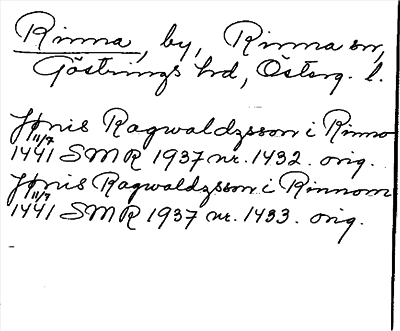 Rinna, by, Rinna sn,
Göstrings hd, Österg. l.
Jönis Ragwaldzsson i Rinno
11/7
1441 SMR 1937 nr. 1432. orig.
Jönis Ragwaldzsson i Rinnom
11/7
1441 SMR 1937 nr. 1433. orig.